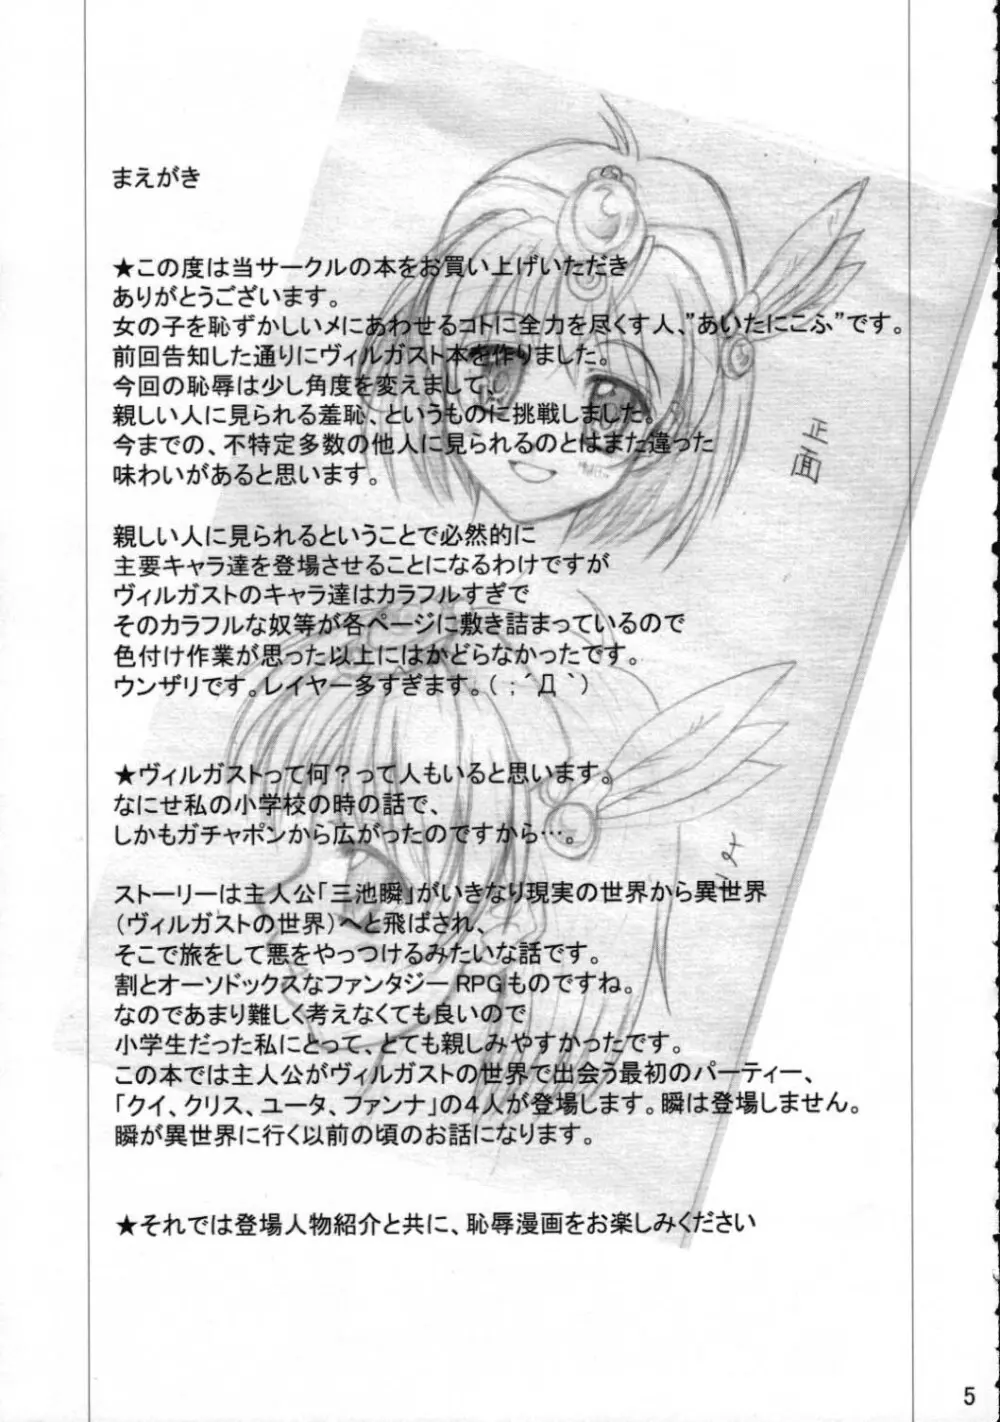 まえがき
★この度は当サークルの本をお買い上げいただき
ありがとうございます。
女の子を恥ずかしいメにあわせるコトに全力を尽くす人、”あいたにこふ”です。
前回告知した通りにヴィルガスト本を作りました。
今回の恥辱は少し角度を変えまして、
親しい人に見られる羞恥、というものに挑戦しました。
今までの、不特定多数の他人に見られるのとはまた違った
味わいがあると思います。
親しい人に見られるということで必然的に
主要キャラ達を登場させることになるわけですが
ヴィルガストのキャラ達はカラフルすぎで
そのカラフルな奴等が各ページに敷き詰まっているので
色付け作業が思った以上にはかどらなかったです。
ウンザリです。レイヤー多すぎます。(；´Д｀)
★ヴィルガストって何？って人もいると思います。
なにせ私の小学校の時の話で、
しかもガチャポンから広がったのですから…。
ストーリーは主人公「三池瞬」がいきなり現実の世界から異世界
(ヴィルガストの世界)へと飛ばされ、
そこで旅をして悪をやっつけるみたいな話です。
割とオーソドックスなファンタジーRPGものですね。
なのであまり難しく考えなくても良いので
小学生だった私にとって、とても親しみやすかったです。
この本では主人公がヴィルガストの世界で出会う最初のパーティー、
「クイ、クリス、ユータ、ファンナ」の４人が登場します。瞬は登場しません。
瞬が異世界に行く以前の頃のお話になります。
★それでは登場人物紹介と共に、恥辱漫画をお楽しみください
正面
5